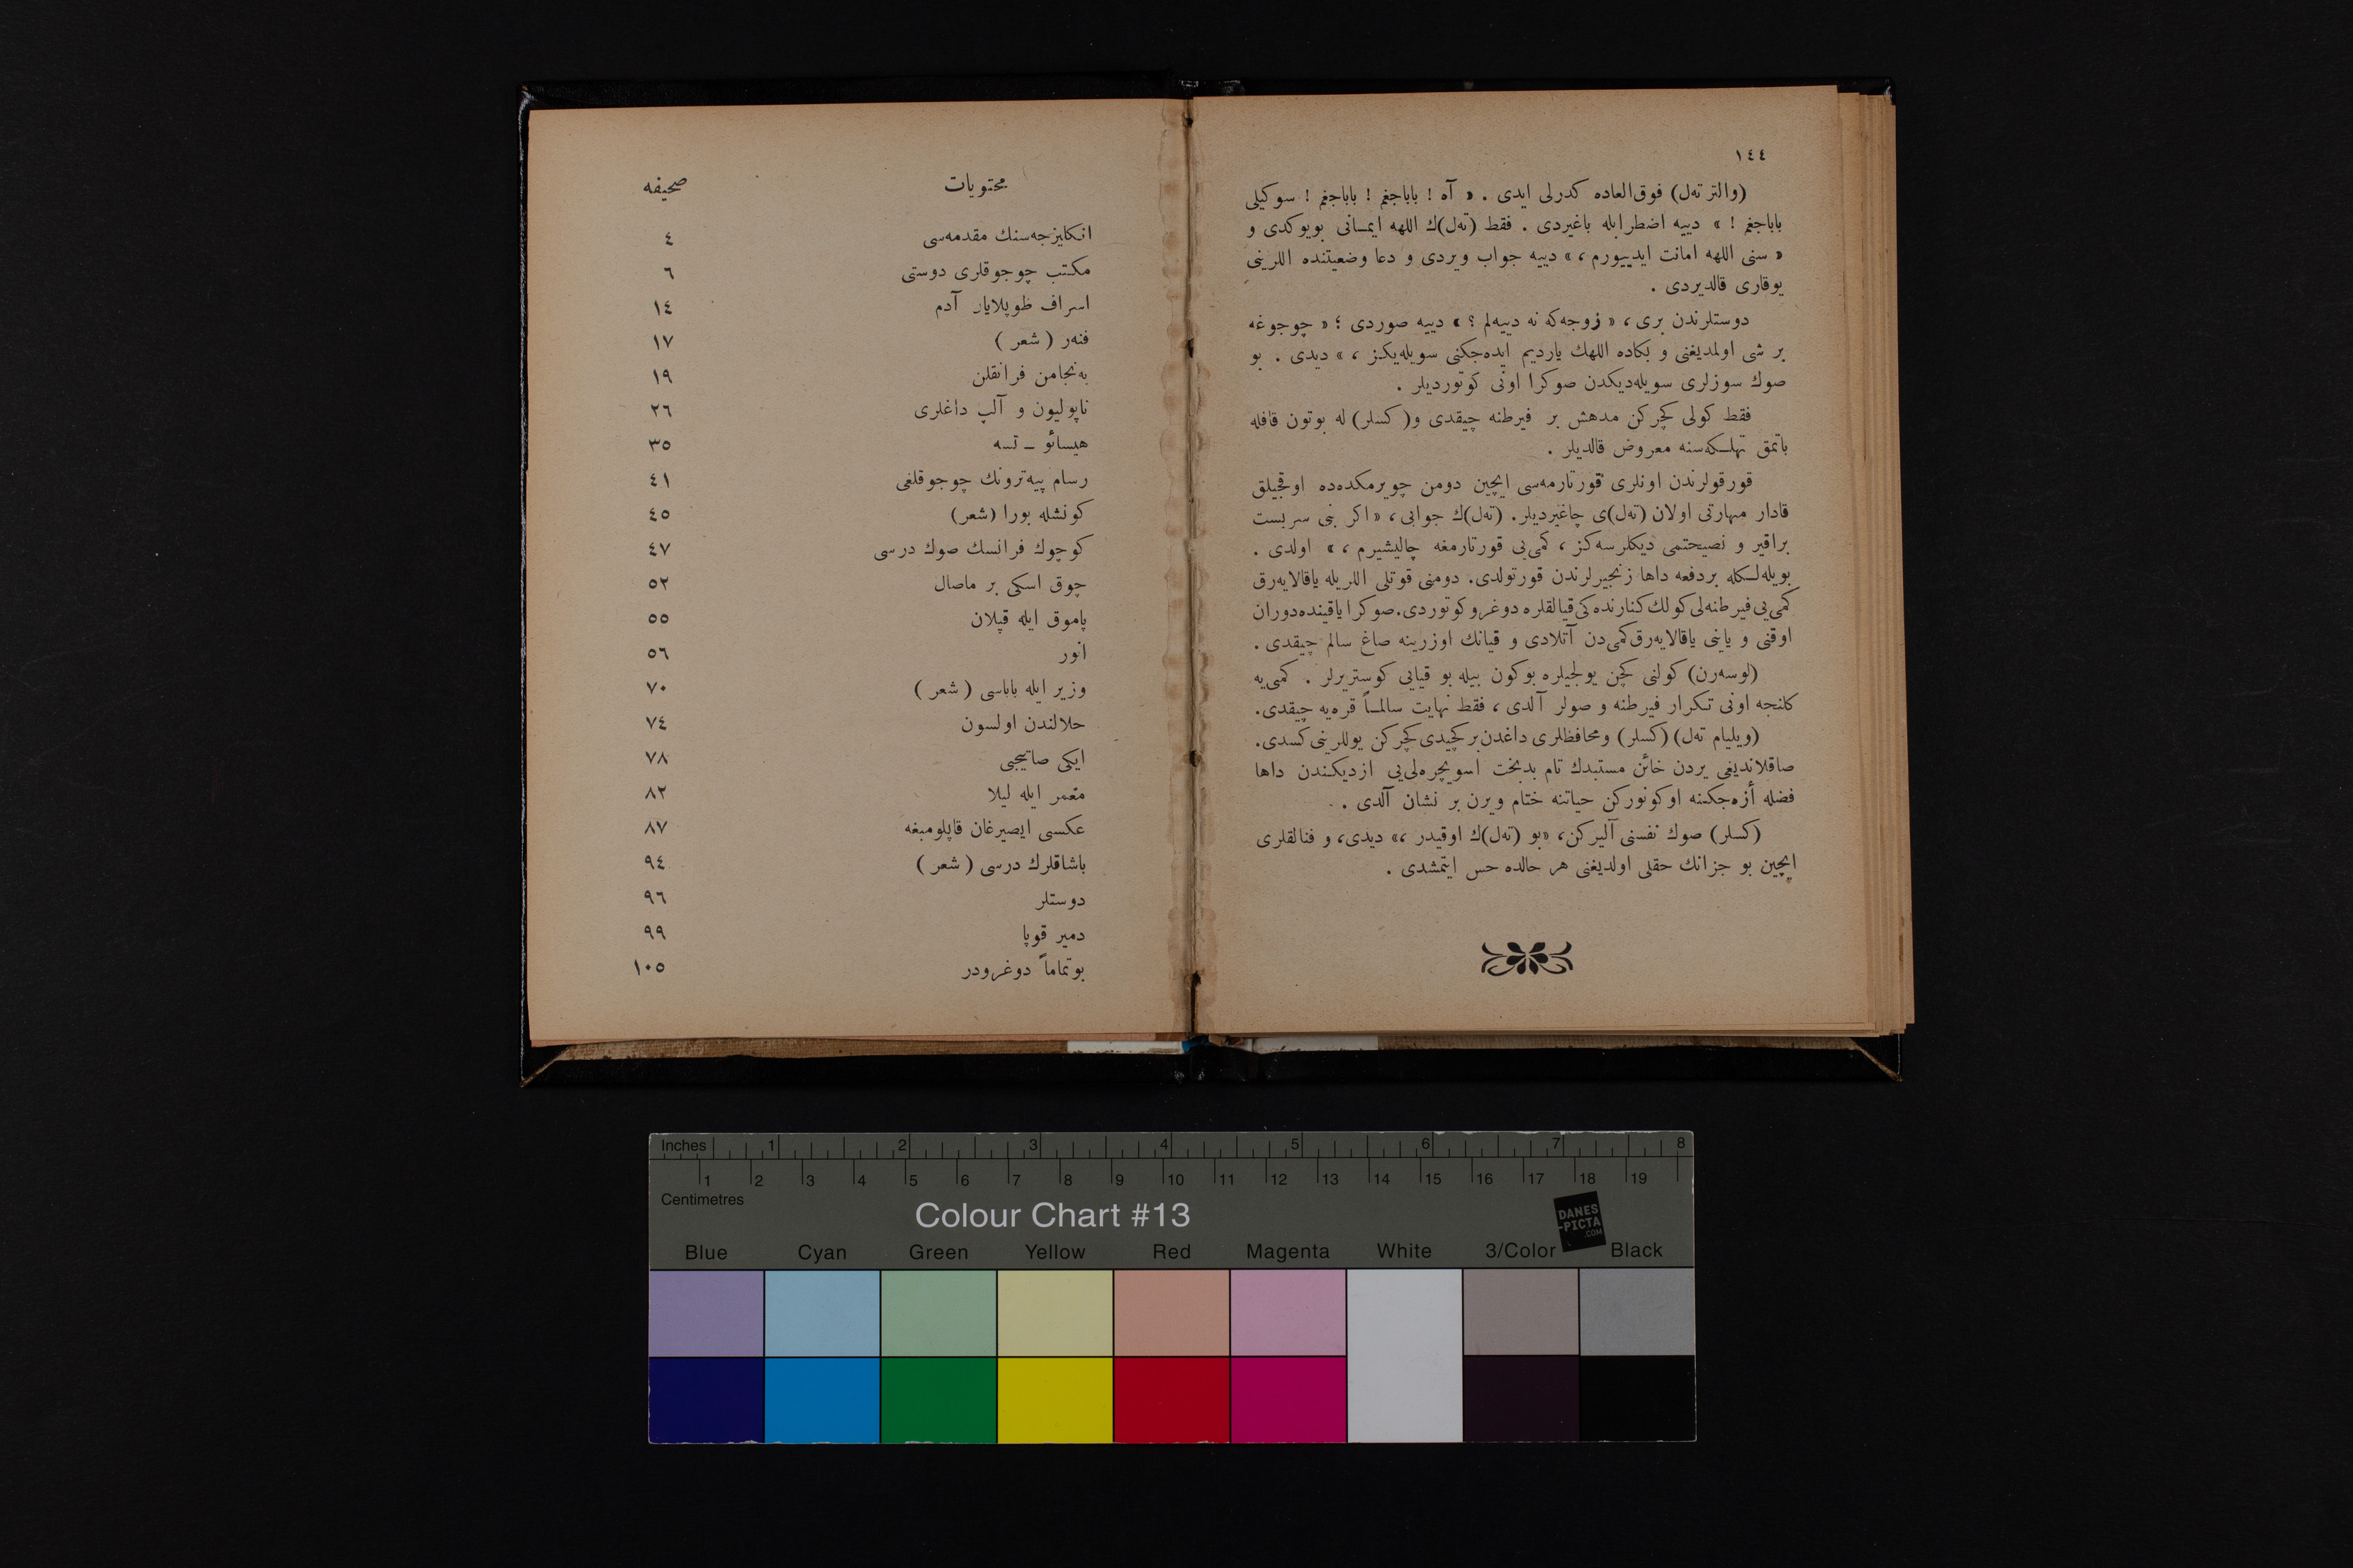 ١٤٤
(والتر تەل) فوق‌العاده كدرلی ایدی . « آه ! باباجغم ! باباجغم ! سوكیلی
باباجغم ! » دییه اضطرابله باغیردی . فقط (تەل)ك اللهه ایمـانی بویوكدی و
« سنی اللهه امانت ایدییورم ، » دییه جواب ویردی و دعا وضعیتنده اللرینی
یوقاری قالدیردی .
دوستلرندن بری ، « زوجه‌كه نه دییه‌لم ؟ » دییه صوردی ؛ « چوجوغه
بر شی اولمدیغنی و بكاده اللهك یاردیم ایده‌جكنی سویله‌یكز ، » دیدی . بو
صوك سوزلری سویله‌دیكدن صوكرا اونی كوتوردیلر .
فقط كولی كچركن مدهش بر فیرطنه چیقدی و(كسلر) له بوتون قافله
باتمق تهلـكه‌سنه معروض قالدیلر .
قورقولرندن اونلری قورتارمه‌سی ایچین دومن چویرمكده‌ده اوقجیلق
قادار مهارتی اولان (تەل)ی چاغیردیلر. (تەل)ك جوابی ، « اكر بنی سربست
براقیر و نصیحتمی دیكلرسه‌كز ، كمی‌یی قورتارمغه چالیشیرم ، » اولدی .
بویله‌لـكله بردفعه داها زنجیرلرندن قورتولدی. دومنی قوتلی اللریله یاقالایه‌رق
كمی‌یی فیرطنه‌لی كولك كنارنده‌كی قیالقلره دوغرو كوتوردی. صوكرا یاقینده دوران
اوقنی و یاینی یاقالایه‌رق كمی‌دن آتلادی و قیانك اوزرینه صاغ سالم چیقدی .
(لوسه‌رن) كولنی كچن یولجیلره بوكون بیله بو قیایی كوستریرلر . كمی‌یه
كلنجه اونی تكرار فیرطنه و صولر آلدی ، فقط نهایت سالمـاً قره‌یه چیقدی.
(ویلیام تەل) (كسلر) ومحافظلری داغدن بر كچیدی كچركن یوللرینی كسدی.
صاقلاندیغی یردن خائن مستبدك تام بدبخت اسویچره‌لی‌یی ازدیكندن داها
فضله أزه‌جكنه اوكونوركن حیاتنه ختام ویرن بر نشان آلدی .
(كسلر) صوك نفسنی آلیركن، «بو (تەل)ك اوقیدر ،» دیدی، و فنالقلری
ایچین بو جزانك حقلی اولدیغنی هر حالده حس ایتمشدی .
محتویات صحیفه
انكلیزجه‌سنك مقدمه‌سی ٤
مكتب چوجوقلری دوستی ٦
اسراف طوپلایان آدم ١٤
فنەر ( شعر ) ١٧
به‌نجامن فرانقلن ١٩
ناپولیون و آلپ داغلری ٢٦
هیسائو ـ تسه ٣٥
رسام پیه‌ترونك چوجوقلغی ٤١
كونشله بورا (شعر) ٤٥
كوچوك فرانسك صوك درسی ٤٧
چوق اسكی بر ماصال ٥٢
پاموق ایله قپلان ٥٥
انور ٥٦
وزیر ایله باباسی ( شعر ) ٧٠
حلالندن اولسون ٧٤
ایكی صاتیجی ٧٨
معمر ایله لیلا ٨٢
عكسی ایصیرغان قاپلومبغه ٨٧
باشاقلرك درسی ( شعر ) ٩٤
دوستلر ٩٦
دمیر قوپا ٩٩
بوتماماً دوغرودر ١٠٥
Inches 1 2 3 4 5 6 7 8
1 2 3 4 5 6 7 8 9 10 11 12 13 14 15 16 17 18 19
Centimetres
Colour Chart #13
DANES
-PICTA
.COM
Blue Cyan Green Yellow Red Magenta White 3/Color Black